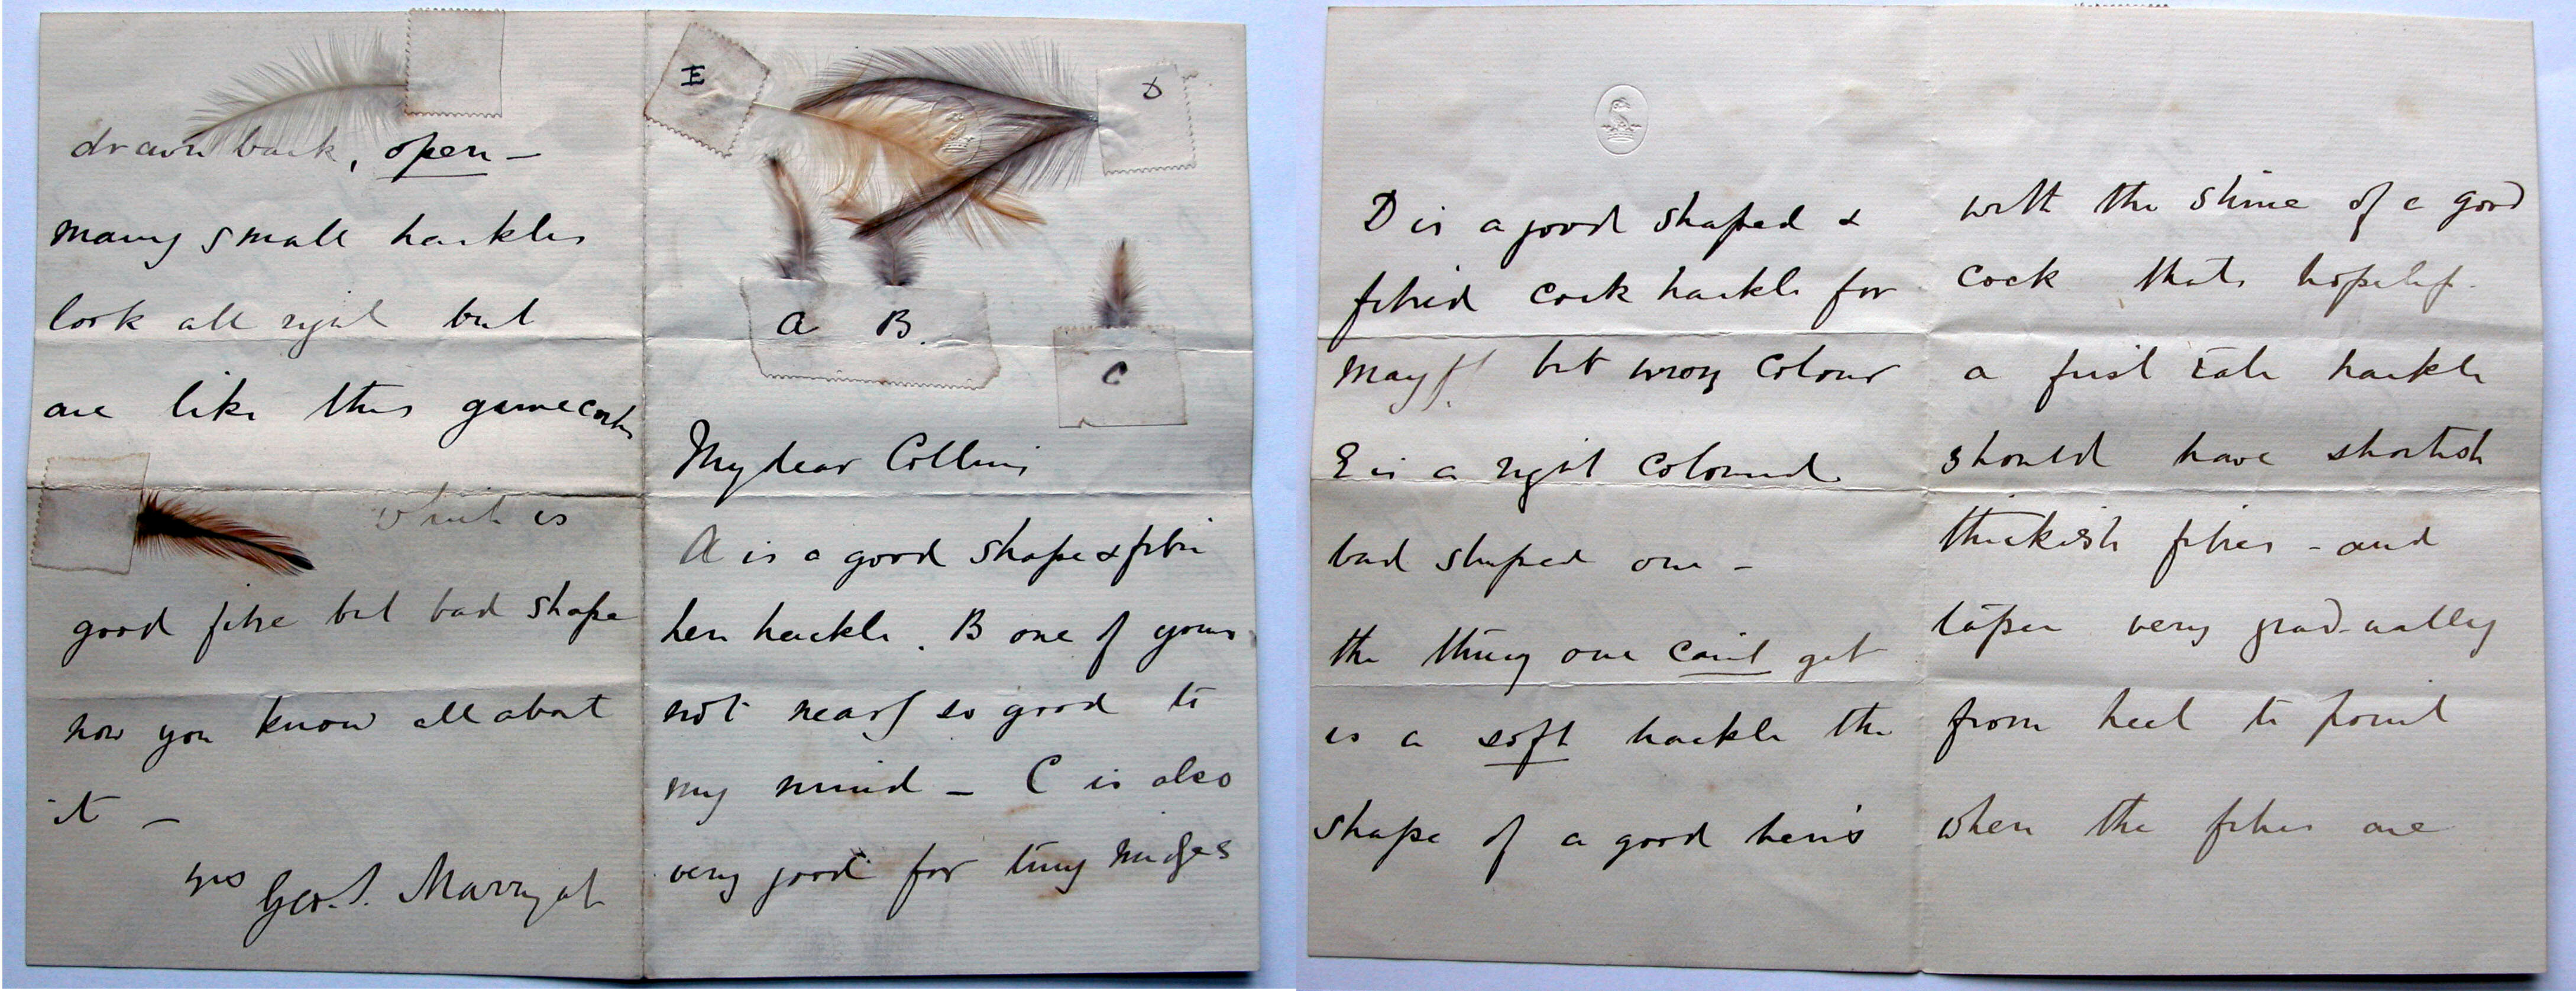 E
D
A B.
C
My dear Collins
A is a good shape & fibre
hen hackle. B one of yours
not nearly so good to
my mind – C is also
very good for tiny midges
D is a good shaped &
fibred cock hackle for
mayfl. but wrong colour
E is a right coloured
bad shaped one –
the thing one can't get
is a soft hackle the
shape of a good hen's
with the shine of a good
cock thats hopeless.
a first rate hackle
should have shortish
thickish fibres – and
taper very grad-ually
from heel to point
when the fibres are
drawn back, open –
many small hackles
look all right but
are like this gamecocks
which is
good fibre but bad shape
now you know all about
it –
yrs Geo. S. Marryat